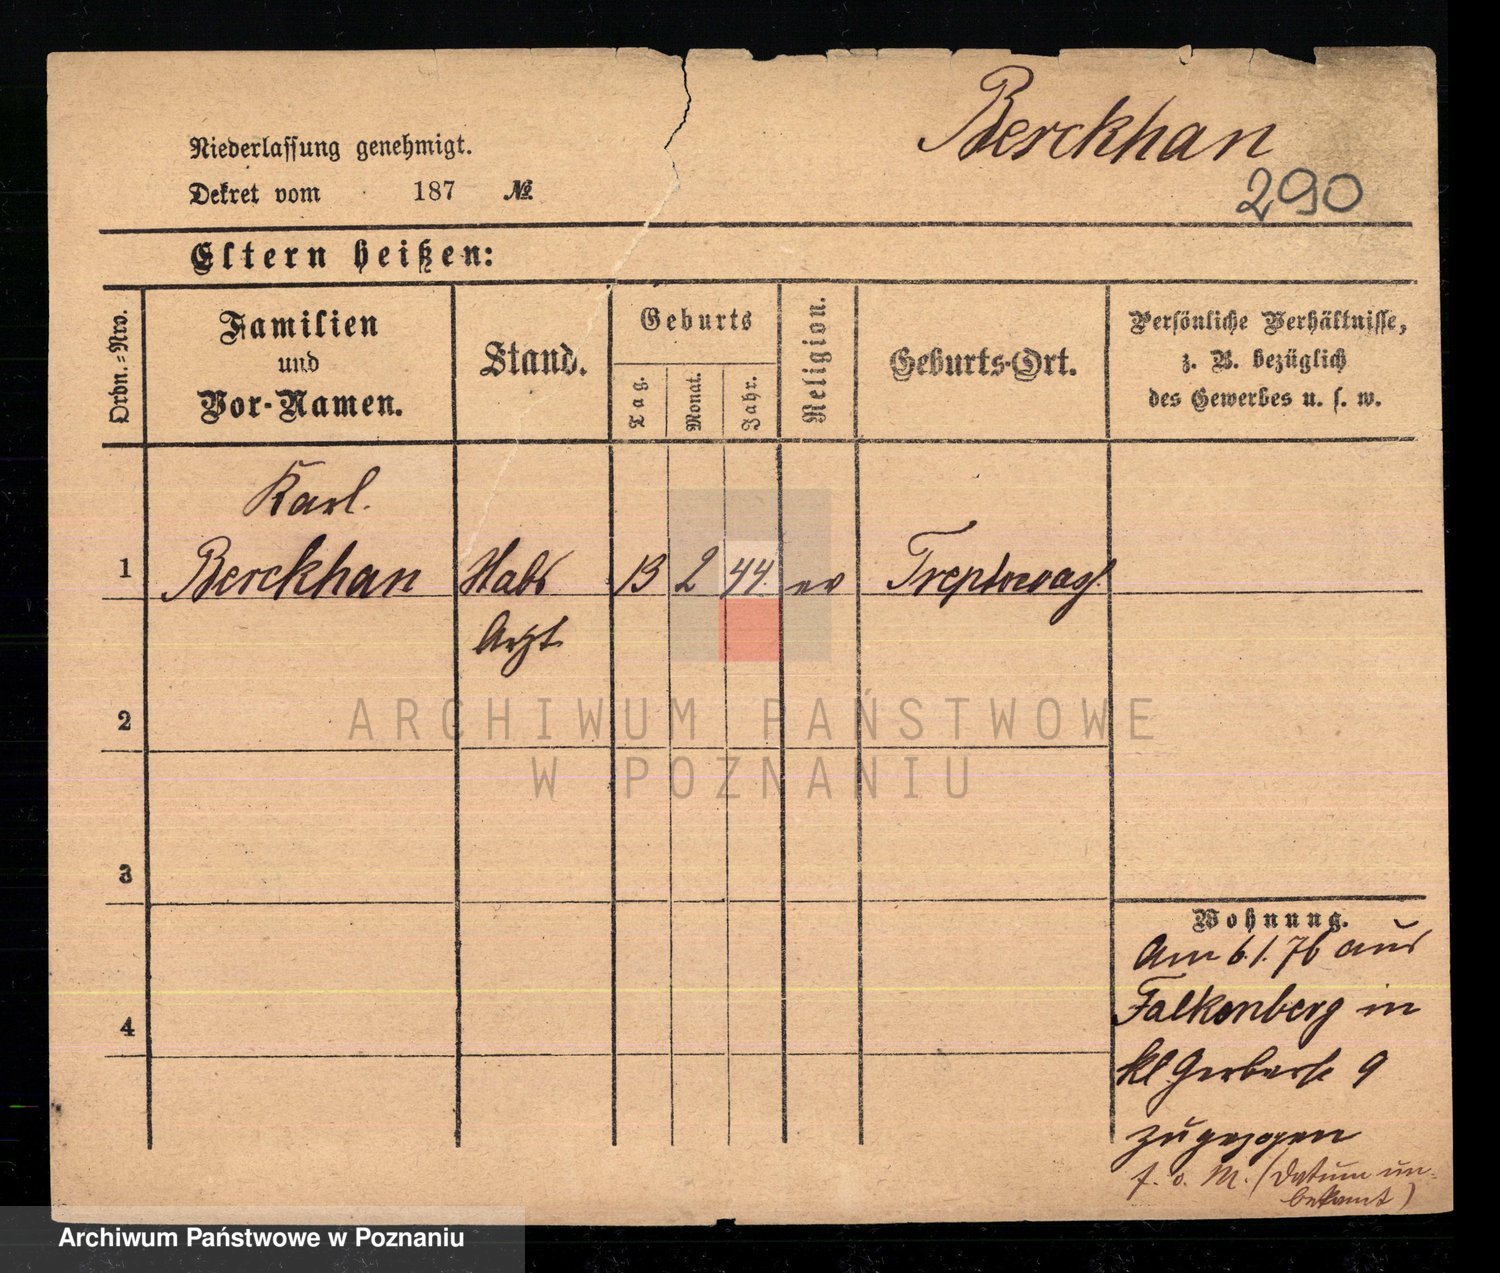 Berckhan
290
Niederlassung genehmigt.
Dekret vom 187 №
Eltern heißen:
Ordn.=Nro.
Familien
und
Vor-Namen.
Stand.
Geburts
Tag.
Monat.
Jahr.
Religion.
Geburts-Ort.
Persönliche Verhältnisse,
z. B. bezüglich
des Gewerbes u. s. w.
Karl.
1 Berckhan 13 2 44 ev
Arzt
2
3
4
Wohnung.
Am 6.1.76 aus
Falkenberg in
kl. Gerberstr 9
zugezogen
f. o. M. (Datum un-
bekannt)
ARCHIWUM PAŃSTWOWE
W POZNANIU
Archiwum Państwowe w Poznaniu